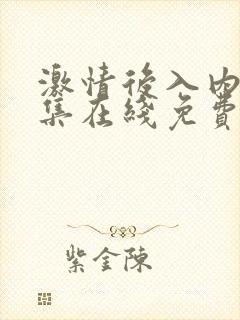 激情後入内
集在綫免費
紫金陳